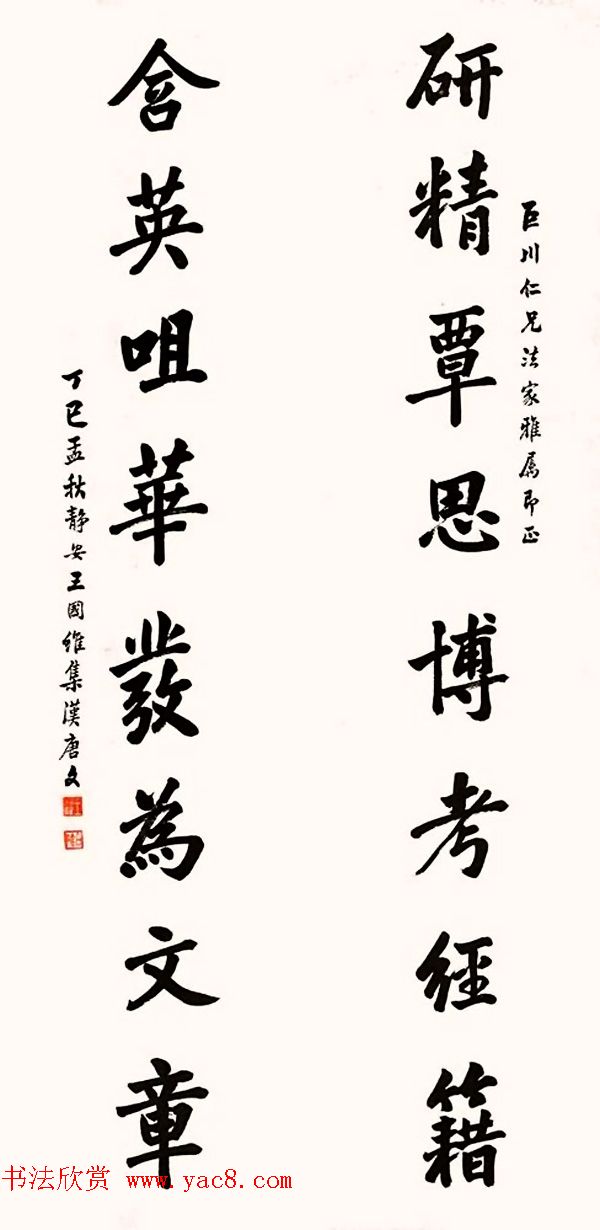 巨川仁兄法家雅属即正
研精覃思博考經籍
含英咀華發為文章
丁巳孟秋静安王國維集漢唐文
书法欣赏 www.yac8.com